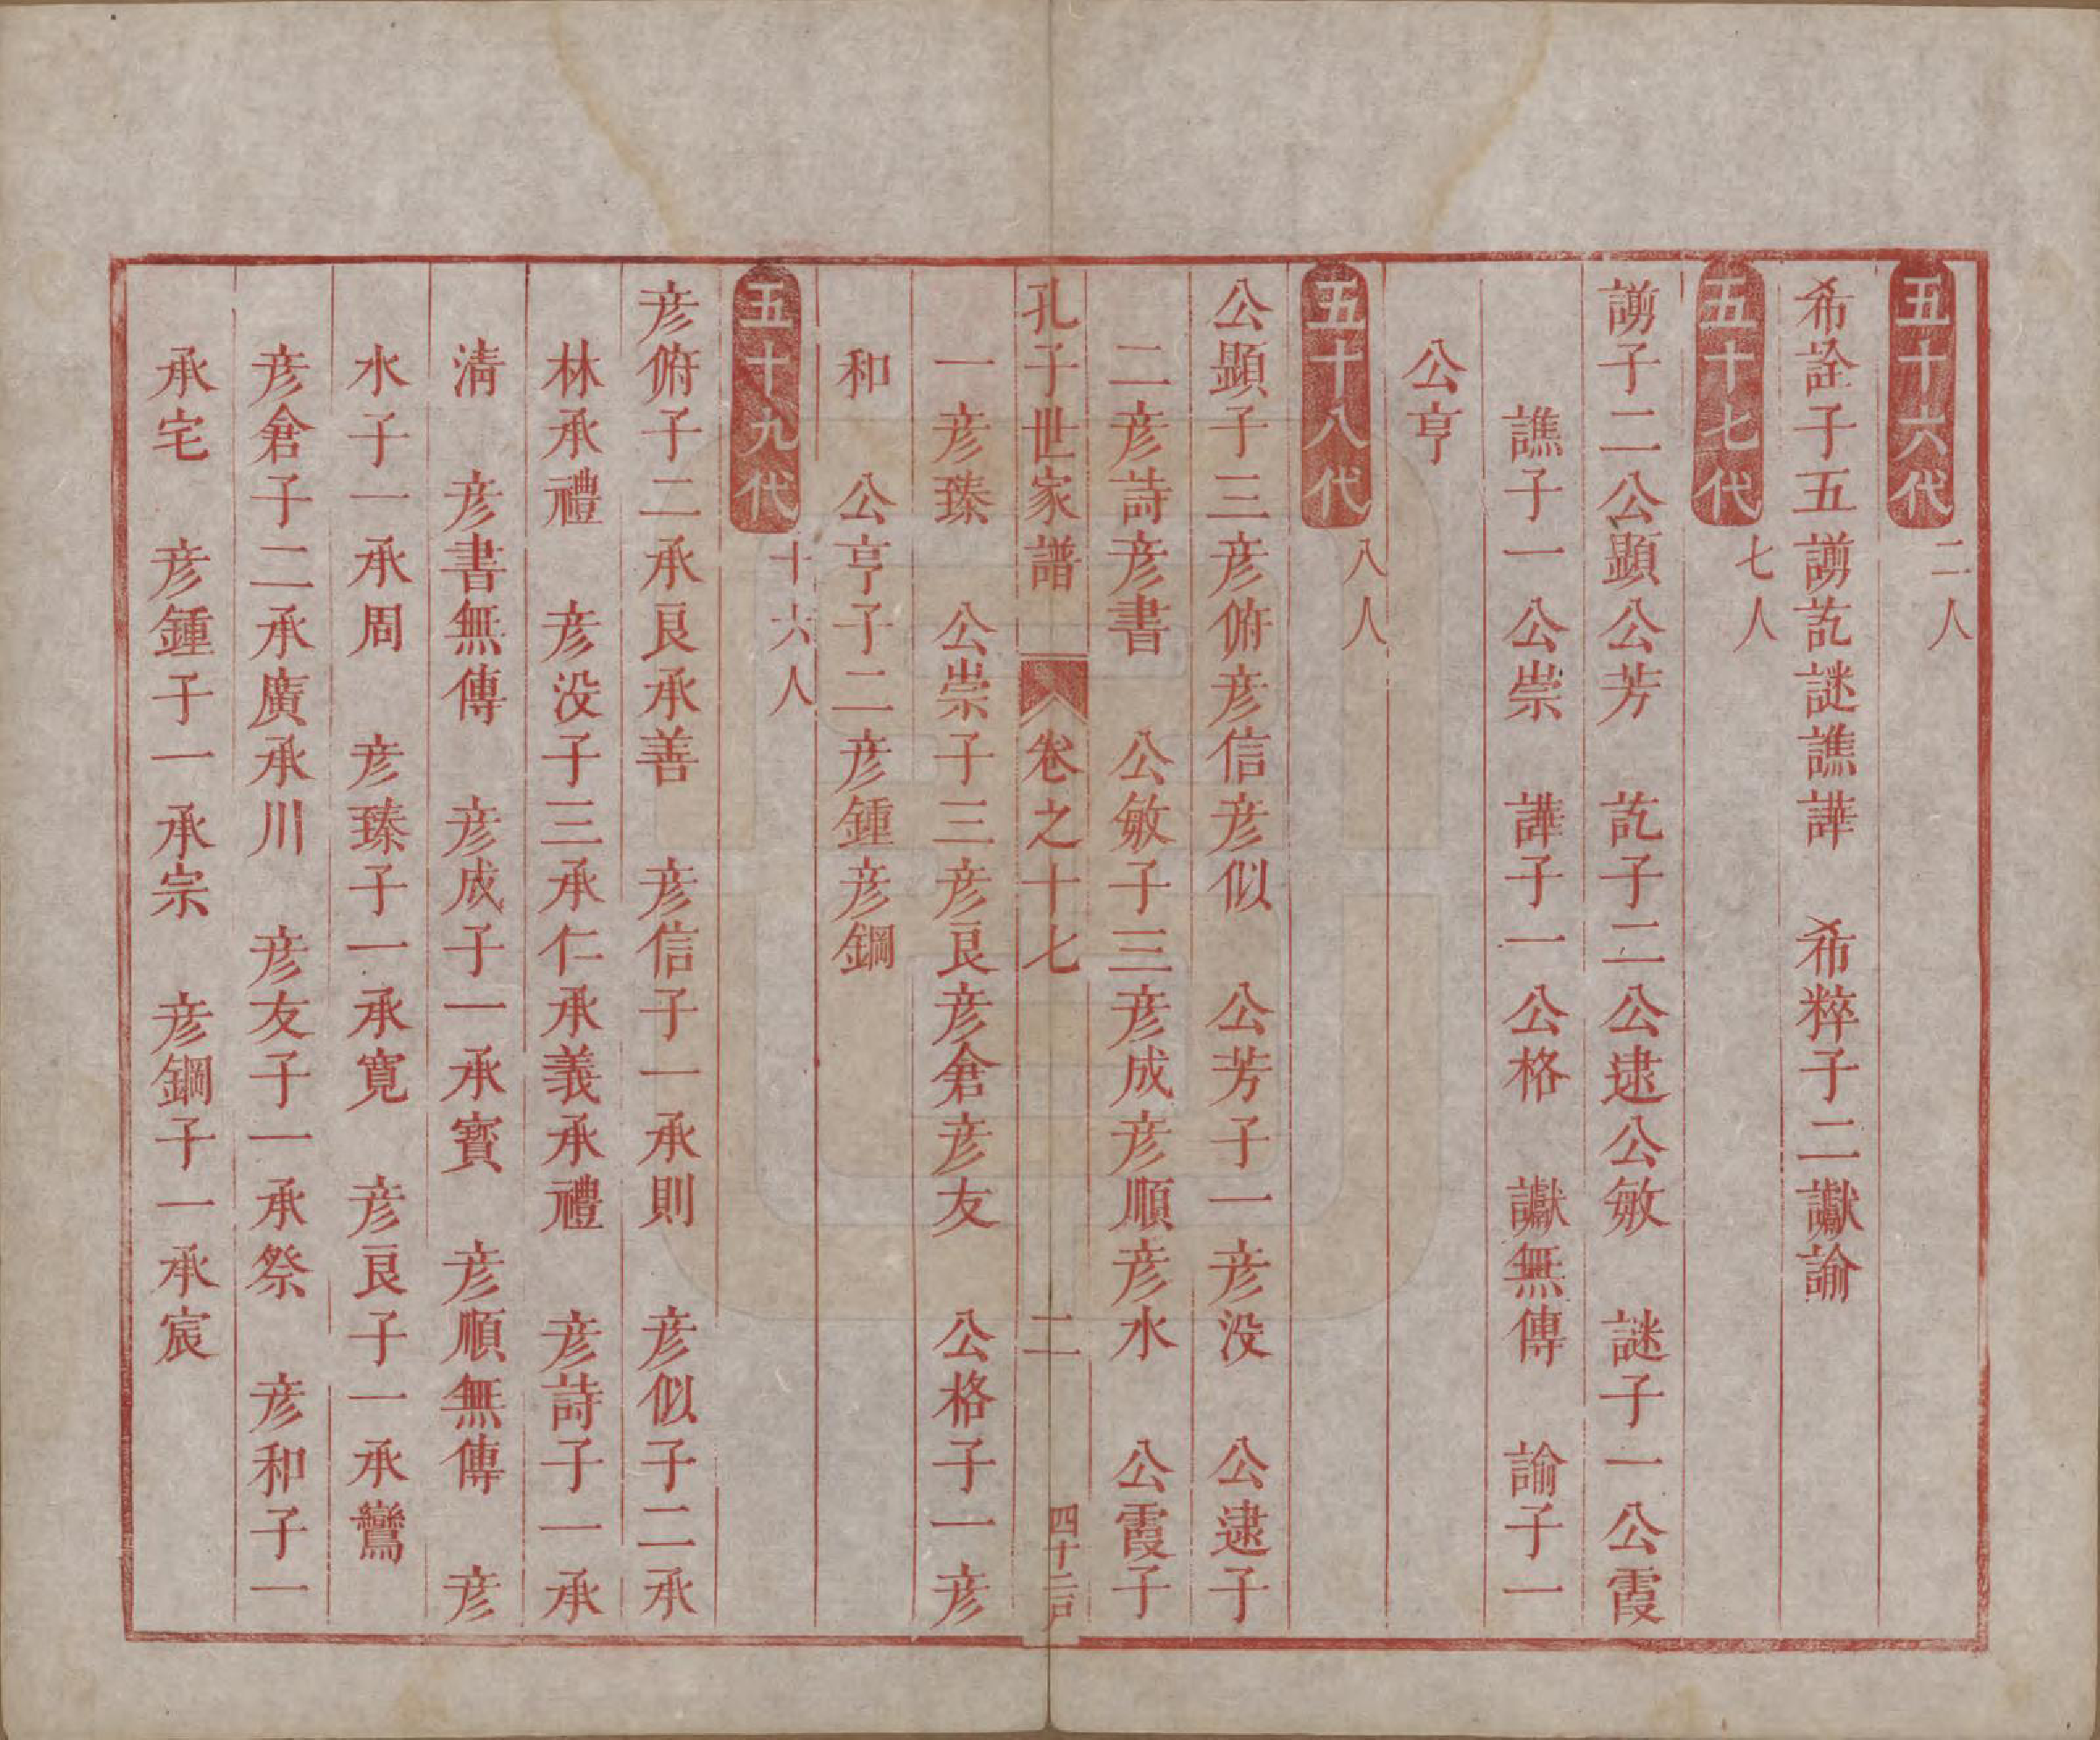 五十六代 二人
希詮子五謭訖謎譙譁 希粹子二讞諭
五十七代 七人
謭子二公顯公芳 訖子二公逮公敏 謎子一公霞
譙子一公崇 譁子一公格 讞無傳 諭子一
公亨
五十八代 八人
公顯子三彦俯彦信彦似 公芳子一彦没 公逮子
二彦詩彦書 公敏子三彦成彦順彦水 公霞子
孔子世家譜 卷之十七 二 四十二戸
一彦臻 公崇子三彦良彦倉彦友 公格子一彦
和 公亨子二彦鍾彦鋼
五十九代 十六人
彦俯子二承良承善 彦信子一承則 彦似子二承
林承禮 彦没子三承仁承義承禮 彦詩子一承
淸 彦書無傳 彦成子一承賓 彦順無傳 彦
水子一承周 彦臻子一承寛 彦良子一承鸞
彦倉子二承廣承川 彦友子一承祭 彦和子一
承宅 彦鍾子一承宗 彦鋼子一承宸